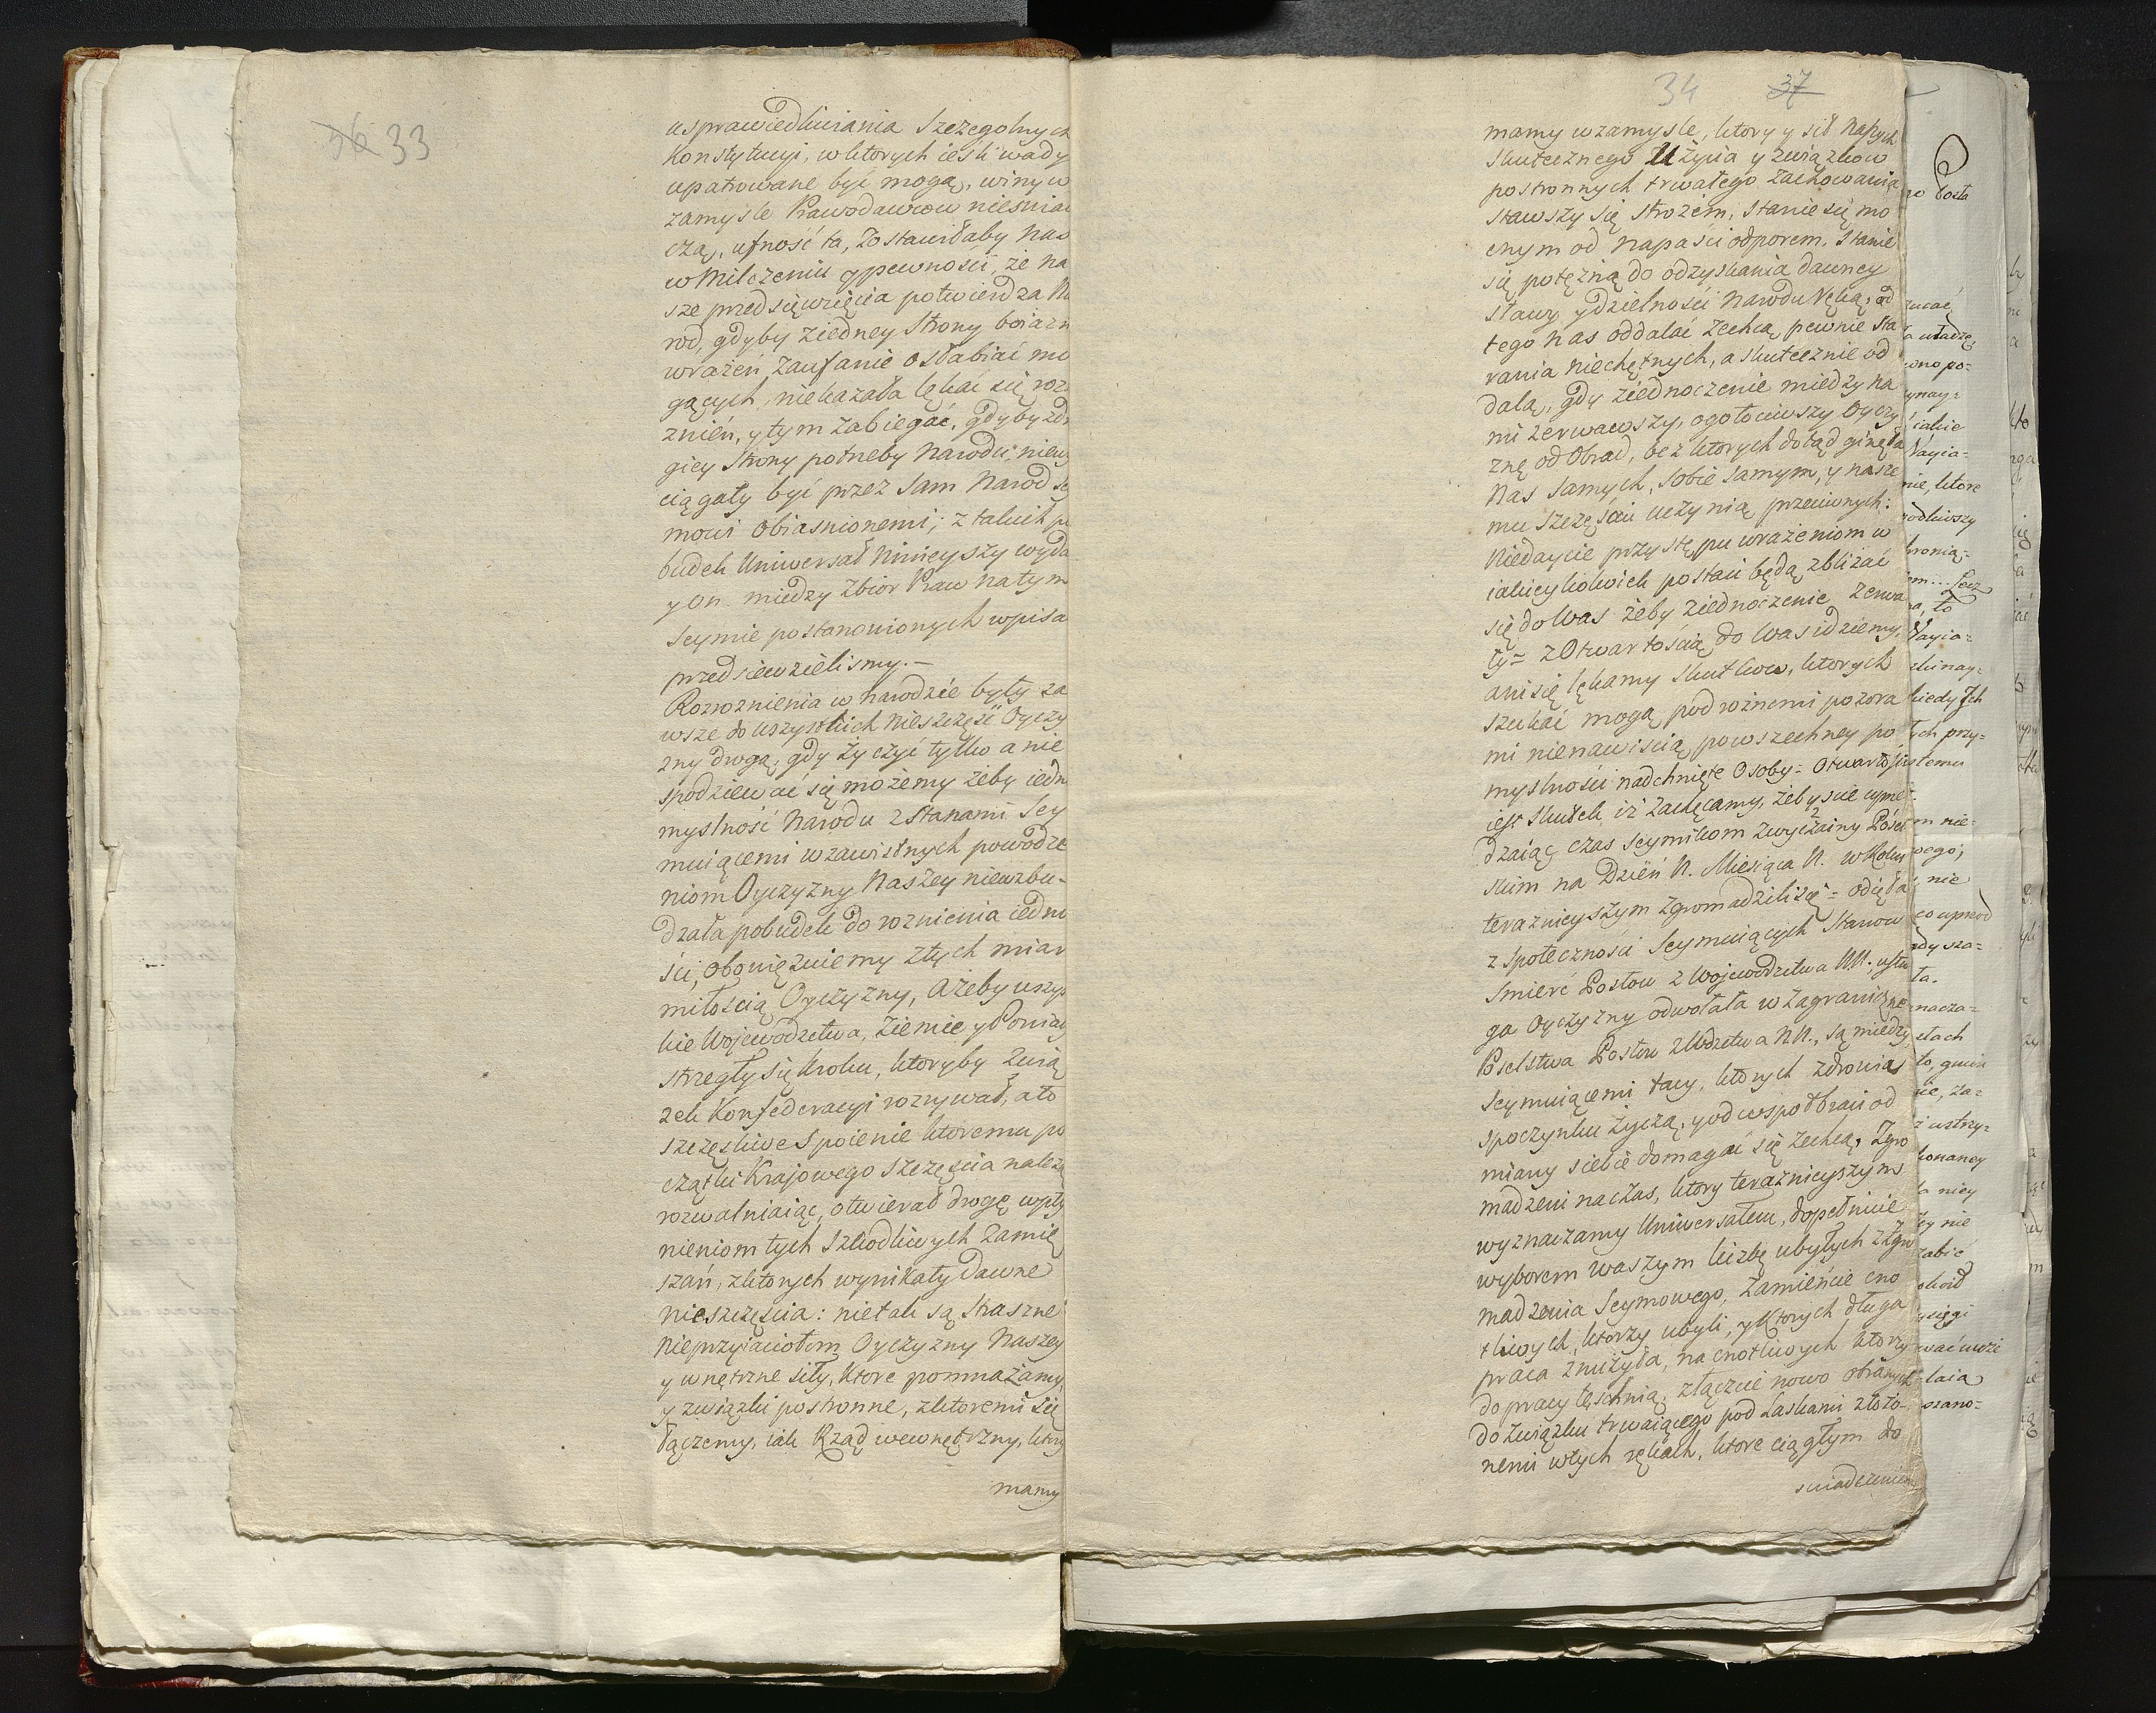 36 33
usprawiedliwiania szczegolnych
Konstytucyi, w ktorych ieśli wady
upatrowane być mogą, winy w
zamysle Prawodawcow nieświad
czą, ufność ta, zostawiłaby nas
w Milczeniu y pewności, że na
sze przedsięwzięcia potwierdza Na
rod, gdyby ziedney Strony boiazn
wrażeń, zaufanie osłabiać mo
gących, niekazała lękać się roz
znień, y tym zabiegać, gdyby zdr
giey Strony potrzeby Narodu, niew
ciągały być przez sam Narod Sey
mowi obiasnionemi; z takich po
budek Uniwersał Ninieyszy wyda
y On między zbior Praw na tym
Seymie postanowionych wpisa
przedsiewzielismy.—
Rozroznienia w narodzie były za
wsze do wszystkich nieszczęść Oyczy
zny drogą, gdy życzyć tylko a nie
spodziewać się możemy żeby iedn
myslność Narodu z Stanami Sey
muiącemi w zawistnych powodze
niom Oyczyzny Naszey niewzbu-
dzała pobudek do roznienia iedno
ści, obowięzuiemy złych miar
miłością Oyczyzny, Ażeby wszys
kie Woiewodztwa, Ziemie y Powiaty
strzegły się kroku, ktoryby Zwią
zek Konfederacyi rozrywał, a to
szczęsliwe Spoienie ktoremu po
czątki Krajowego szczęscia należą
rozwalniaiąc, otwierał drogę wpły
nieniom tych Szkodliwych zamię
szań, z ktorych wynikały dawne
nieszczęscia: nie tak są straszne
nieprzyiaciołom Oyczyzny Naszey
y wnętrzne siły, Ktore pomnażamy
y związki postronne, z ktoremi się
łączemy, iak Rząd wewnętrzny, ktory
mamy
34 37
mamy w zamysle, ktory y sił naszych
skutecznego Użycia y związkow
postronnych trwałego zachowania
stawszy się strożem, stanie się mo
cnym od napaści odporem, stanie
się potężną do odzyskania dawney
sławy y dzielności Narodu ręką; od
tego nas oddalać zechcą pewnie sta
rania niechętnych, a skutecznie od
dalą, gdy ziednoczenie między na
mi zerwawszy, ogołociwszy Oyczy
znę od Obrad, bez ktorych dotąd ginęła
Nas samych, sobie samym, y nasze
mu szczęściu uczynią przeciwnych:
Niedaycie przystępu wrażeniom w
iakieykolwiek postaci będą zbliżać
się do Was żeby ziednoczenie zerwa
ły= z Otwartością do Was idziemy,
ani się lękamy skutkow, ktorych
szukać mogą pod rożnemi pozora
mi nienawiścią powszechney po
myslności nadchnięte Osoby= Otwartości
iest skutek iż zachęcamy, żebyscie uprze
dzaiąc czas Seymikom zwyczainy Posel
skim na Dzień N. Miesiąca N. w Roku
teraznieyszym zgromadzili się= odięła
z społeczności Seymuiących Stanow
Smierć Posłow z Wojewodztwa NN., usłu
ga Oyczyzny odwołała w Zagraniczne
Poselstwa Posłow z Wdztwa NN., są między
Seymuiącemi tacy, ktorych zdrowia
spoczynku życzą, y od wspołbraci od
miany siebie domagać się zechcą, Zgro
madzeni na czas, ktory teraznieyszym
wyznaczamy Uniwersałem, dopełnicie
wyborem waszym liczbę ubyłych z Zgro
madzenia Seymowego, Zamieńcie cno
tliwych, ktorzy ubyli, y Ktorych długa
praca znużyła, na cnotliwych ktorzy
do pracy tęschnią, złączcie nowo obranych
do związku trwaiącego pod Laskami złożo-
nemi w tych rękach, ktore ciągłym do
swiadczeniem